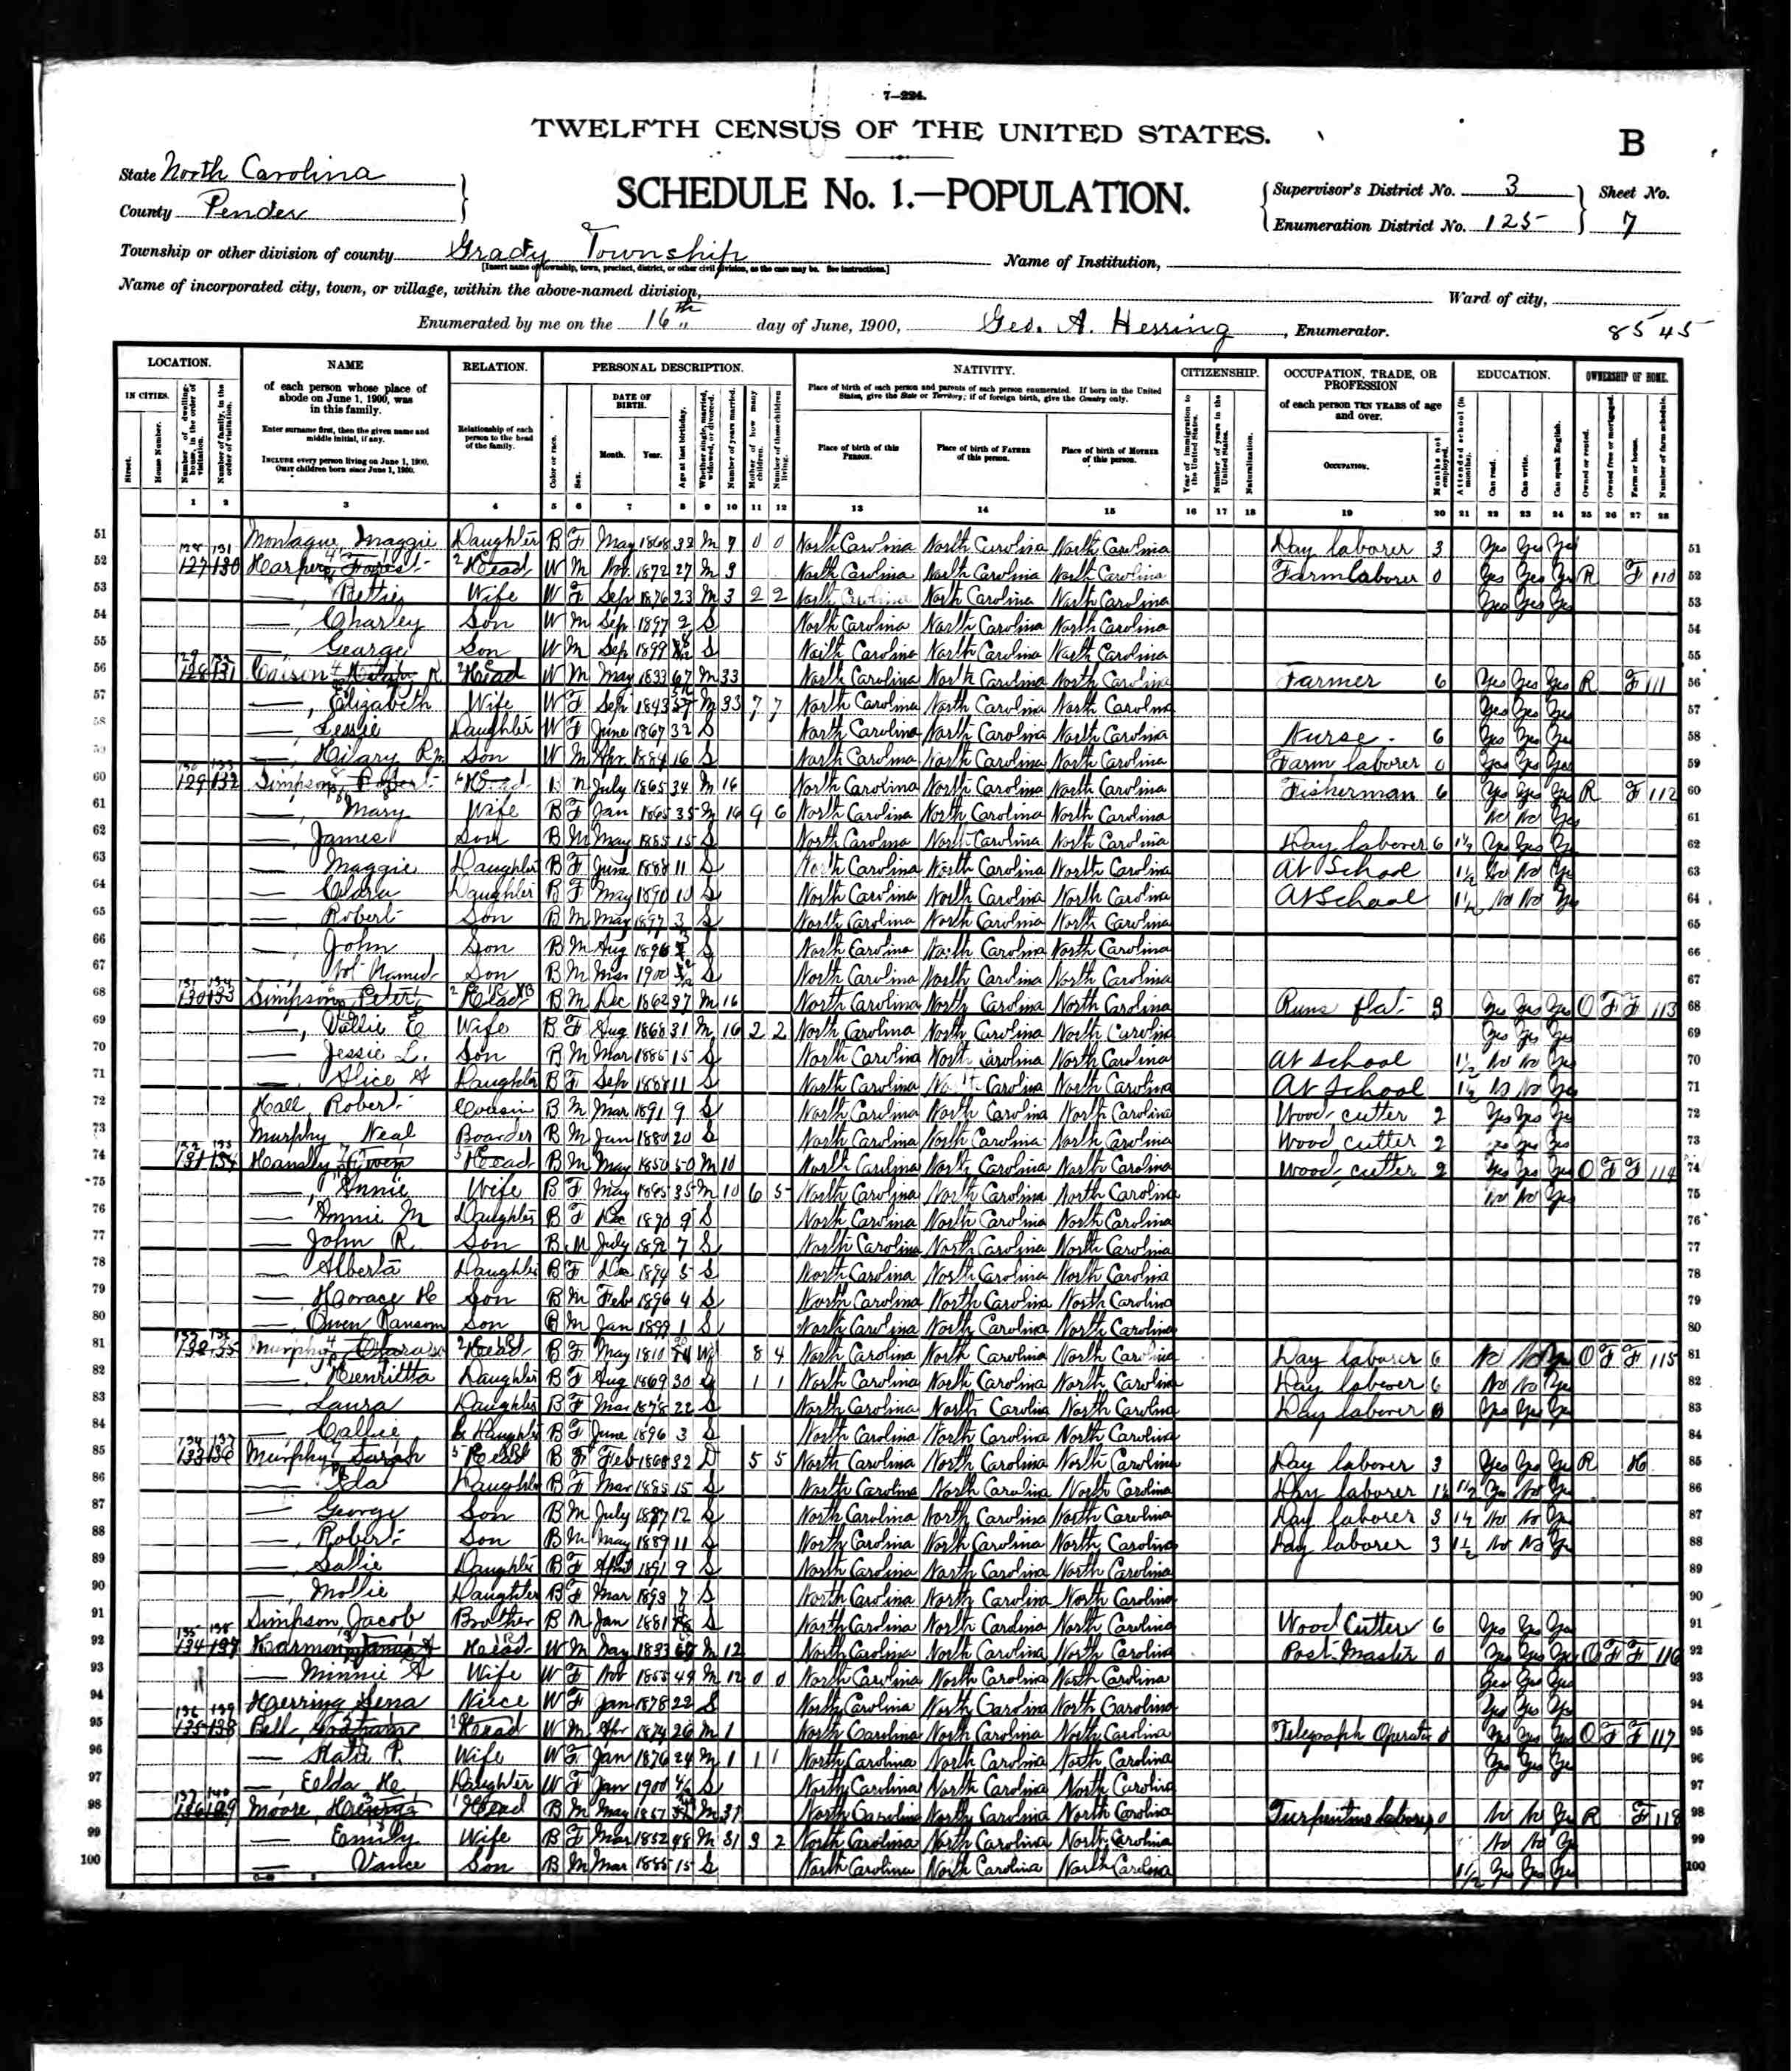 7-224.
TWELFTH CENSUS OF THE UNITED STATES.
B
State North Carolina
County Pender
SCHEDULE No. 1.—POPULATION.
Supervisor's District No. 3
Enumeration District No. 125
Sheet No.
7
Township or other division of county Grady Township
[Insert name of township, town, precinct, district, or other civil division, as the case may be. See instructions.]
Name of Institution,
Name of incorporated city, town, or village, within the above-named division,
Ward of city,
Enumerated by me on the 16th day of June, 1900, Geo. A. Herring, Enumerator.
8545
LOCATION. NAME RELATION. PERSONAL DESCRIPTION. NATIVITY. CITIZENSHIP. OCCUPATION, TRADE, OR PROFESSION EDUCATION. OWNERSHIP OF HOME.
IN CITIES. Street. House Number. Number of dwelling-house, in the order of visitation. Number of family, in the order of visitation.
of each person whose place of abode on June 1, 1900, was in this family.
Enter surname first, then the given name and middle initial, if any.
INCLUDE every person living on June 1, 1900. OMIT children born since June 1, 1900.
Relationship of each person to the head of the family.
Color or race. Sex. DATE OF BIRTH. Month. Year. Age at last birthday. Whether single, married, widowed, or divorced. Number of years married. Mother of how many children. Number of these children living.
Place of birth of each person and parents of each person enumerated. If born in the United States, give the State or Territory; if of foreign birth, give the Country only.
Place of birth of this PERSON. Place of birth of FATHER of this person. Place of birth of MOTHER of this person.
Year of immigration to the United States. Number of years in the United States. Naturalization.
of each person TEN YEARS of age and over.
OCCUPATION. Months not employed.
Attended school (in months). Can read. Can write. Can speak English.
Owned or rented. Owned free or mortgaged. Farm or house. Number of farm schedule.
1 2 3 4 5 6 7 8 9 10 11 12 13 14 15 16 17 18 19 20 21 22 23 24 25 26 27 28
51 Montague Maggie Daughter B F May 1868 32 M 9 0 0 North Carolina North Carolina North Carolina Day laborer 3 Yes Yes Yes 51
52 127 130 Harper Head W M Nov 1872 27 M 3 North Carolina North Carolina North Carolina Farm laborer 0 Yes Yes Yes R F 110 52
53 —, Bettie Wife W F Sep 1876 23 M 3 2 2 North Carolina North Carolina North Carolina Yes Yes Yes 53
54 —, Charley Son W M Sep 1897 2 S North Carolina North Carolina North Carolina 54
55 —, George Son W M Sep 1899 S North Carolina North Carolina North Carolina 55
56 128 131 R Head W M May 1833 67 M 33 North Carolina North Carolina North Carolina Farmer 6 Yes Yes Yes R F 111 56
57 —, Elizabeth Wife W F Sep 1843 M 33 7 7 North Carolina North Carolina North Carolina Yes Yes Yes 57
58 —, Lessie Daughter W F June 1867 32 S North Carolina North Carolina North Carolina Nurse 6 Yes Yes Yes 58
59 —, Hilary Son W M 1884 16 S North Carolina North Carolina North Carolina Farm laborer 0 Yes Yes Yes 59
60 129 132 Simpson Robert Head July 1865 34 M 16 North Carolina North Carolina North Carolina Fisherman 6 Yes Yes Yes R F 112 60
61 —, Mary Wife B F Jan 1865 35 M 16 9 6 North Carolina North Carolina North Carolina No No Yes 61
62 —, James Son B M May 1885 15 S North Carolina North Carolina North Carolina Day laborer 6 1½ Yes Yes Yes 62
63 — Maggie Daughter B F June 1888 11 S North Carolina North Carolina North Carolina At School 1½ No No Yes 63
64 — Clara Daughter B F May 1890 10 S North Carolina North Carolina North Carolina At School 1½ No No Yes 64
65 — Robert Son B M May 1897 3 S North Carolina North Carolina North Carolina 65
66 —, John Son B M Aug 1896 S North Carolina North Carolina North Carolina 66
67 —, Not Named Son B M Mar 1900 S North Carolina North Carolina North Carolina 67
68 130 133 Simpson Peter Head B M Dec 1862 37 M 16 North Carolina North Carolina North Carolina Runs flat 3 Yes Yes Yes O F F 113 68
69 —, Vallie E Wife B F Aug 1868 31 M 16 2 2 North Carolina North Carolina North Carolina Yes Yes Yes 69
70 — Jessie L. Son B M Mar 1885 15 S North Carolina North Carolina North Carolina At School 1½ No No Yes 70
71 — Alice A Daughter B F Sep 1888 11 S North Carolina North Carolina North Carolina At School 1½ No No Yes 71
72 Hall, Robert Cousin B M Mar 1891 9 S North Carolina North Carolina North Carolina Wood cutter 2 Yes Yes Yes 72
73 Murphy Neal Boarder B M Jan 1880 20 S North Carolina North Carolina North Carolina Wood cutter 2 Yes Yes Yes 73
74 131 134 Hansly Owen Head B M May 1850 50 M 10 North Carolina North Carolina North Carolina Wood cutter 2 Yes Yes Yes O F F 114 74
75 —, Annie Wife B F May 1865 35 M 10 6 5 North Carolina North Carolina North Carolina No No Yes 75
76 — Annie M Daughter B F Dec 1890 9 S North Carolina North Carolina North Carolina 76
77 — John R. Son B M July 1892 7 S North Carolina North Carolina North Carolina 77
78 — Alberta Daughter B F Dec 1894 5 S North Carolina North Carolina North Carolina 78
79 — Horace H Son B M Feb 1896 4 S North Carolina North Carolina North Carolina 79
80 —, Owen Ransom Son B M Jan 1899 1 S North Carolina North Carolina North Carolina 80
81 132 135 Murphy Head B F May 1810 Wd 8 4 North Carolina North Carolina North Carolina Day laborer 6 No No Yes O F F 115 81
82 —, Henrietta Daughter B F Aug 1869 30 1 1 North Carolina North Carolina North Carolina Day laborer 6 No No Yes 82
83 —, Laura Daughter B F Mar 1878 22 S North Carolina North Carolina North Carolina Day laborer Yes Yes Yes 83
84 —, Callie G Daughter B F June 1896 3 S North Carolina North Carolina North Carolina 84
85 133 136 Murphy Sarah Head B F Feb 1868 32 D 5 5 North Carolina North Carolina North Carolina Day laborer 3 Yes Yes Yes R H 85
86 — Ida Daughter B F Mar 1885 15 S North Carolina North Carolina North Carolina Day laborer 1½ 1½ Yes No Yes 86
87 — George Son B M July 1887 12 S North Carolina North Carolina North Carolina Day laborer 3 1½ No No Yes 87
88 —, Robert Son B M May 1889 11 S North Carolina North Carolina North Carolina Day laborer 3 1½ No No Yes 88
89 —, Sallie Daughter B F April 1891 9 S North Carolina North Carolina North Carolina 89
90 —, Mollie Daughter B F Mar 1893 7 S North Carolina North Carolina North Carolina 90
91 Simpson, Jacob Brother B M Jan 1881 S North Carolina North Carolina North Carolina Wood Cutter 6 Yes Yes Yes 91
92 134 137 Harmon James A Head W M May 1833 M 12 North Carolina North Carolina North Carolina Post Master 0 Yes Yes Yes O F F 116 92
93 — Minnie A Wife W F Nov 1855 44 M 12 0 0 North Carolina North Carolina North Carolina Yes Yes Yes 93
94 Herring Lena Niece W F Jan 1878 22 S North Carolina North Carolina North Carolina Yes Yes Yes 94
95 135 138 Bell, Graham Head W M Apr 1874 26 M 1 North Carolina North Carolina North Carolina Telegraph Operator 0 Yes Yes Yes O F F 117 95
96 — Katie P. Wife W F Jan 1876 24 M 1 1 1 North Carolina North Carolina North Carolina Yes Yes Yes 96
97 —, Eelda He Daughter W F Jan 1900 S North Carolina North Carolina North Carolina 97
98 136 139 Moore, Head B M May M 31 North Carolina North Carolina North Carolina Turpentine laborer 0 No No Yes R F 118 98
99 — Emily Wife B F Mar 1852 48 M 31 3 2 North Carolina North Carolina North Carolina No No Yes 99
100 — Vance Son B M Mar 1885 15 S North Carolina North Carolina North Carolina 1½ Yes Yes Yes 100